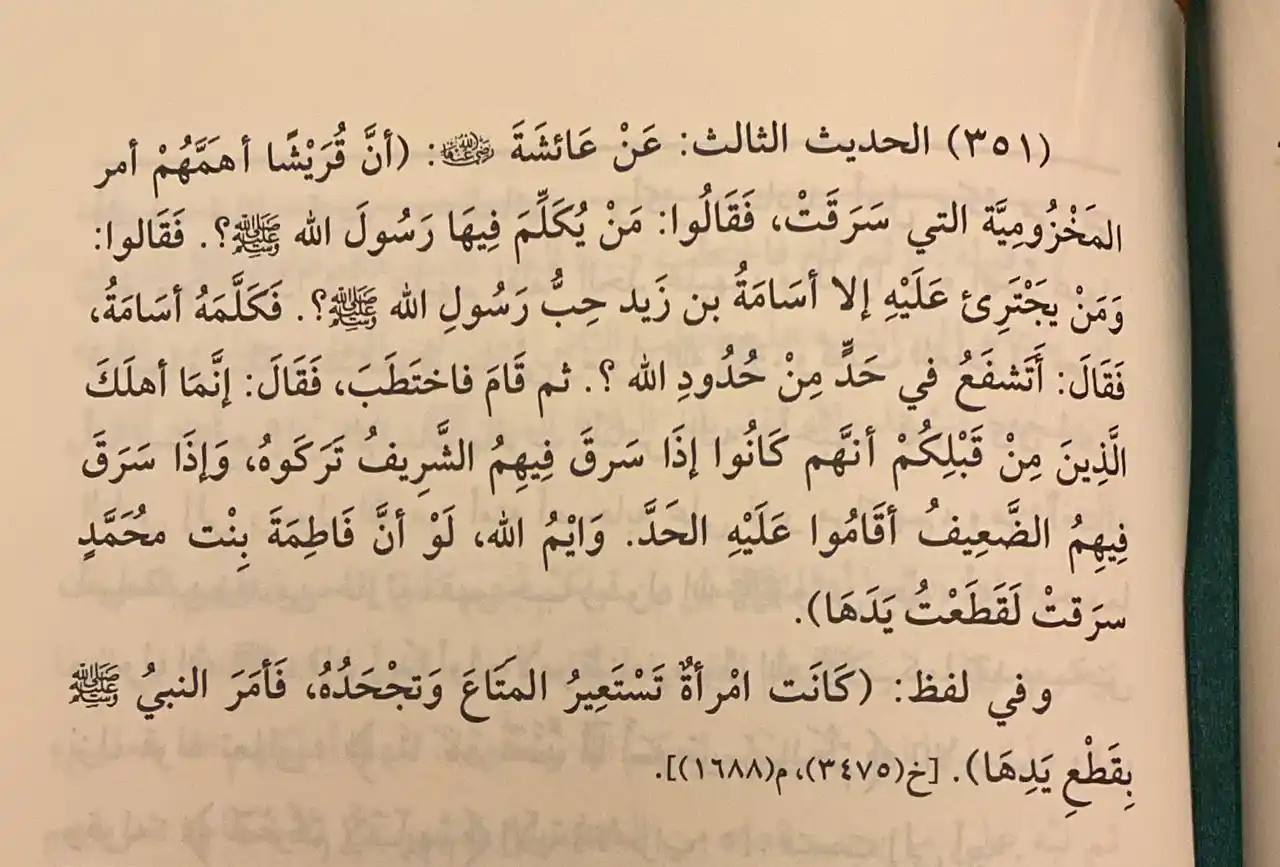 (٣٥١) الحديث الثالث: عَنْ عَائشَةَ رضي الله عنها: (أنَّ قُرَيْشًا أهمَّهُمْ أمر
المَخْزُومِيَّة التي سَرَقَتْ، فَقَالُوا: مَنْ يُكَلِّمَ فِيهَا رَسُولَ الله ﷺ؟. فَقَالوا:
وَمَنْ يجْتَرِئ عَلَيْهِ إلا أسَامَةُ بن زَيد حِبُّ رَسُولِ الله ﷺ؟. فَكَلَّمَهُ أسَامَةُ،
فَقَالَ: أَتَشفَعُ في حَدٍّ مِنْ حُدُودِ الله ؟. ثم قَامَ فاختَطَبَ، فَقَالَ: إنَّمَا أهلَكَ
الَّذِينَ مِنْ قَبْلِكُمْ أنهَّم كَانُوا إذَا سَرقَ فِيهِمُ الشَّرِيفُ تَرَكَوهُ، وَإذَا سَرَقَ
فِيهِمُ الضَّعِيفُ أقَامُوا عَلَيْهِ الحَدَّ. وَايْمُ الله، لَوْ أنَّ فَاطِمَةَ بِنْت محُمَّدٍ
سرَقتْ لَقَطَعْتُ يَدَهَا).
وفي لفظ: (كَانَت امْرأةٌ تَسْتَعِيرُ المتَاعَ وَتجْحَدُهُ، فَأمَرَ النبيُ ﷺ
بِقَطْعِ يَدِهَا). [خ(٣٤٧٥)، م(١٦٨٨)].